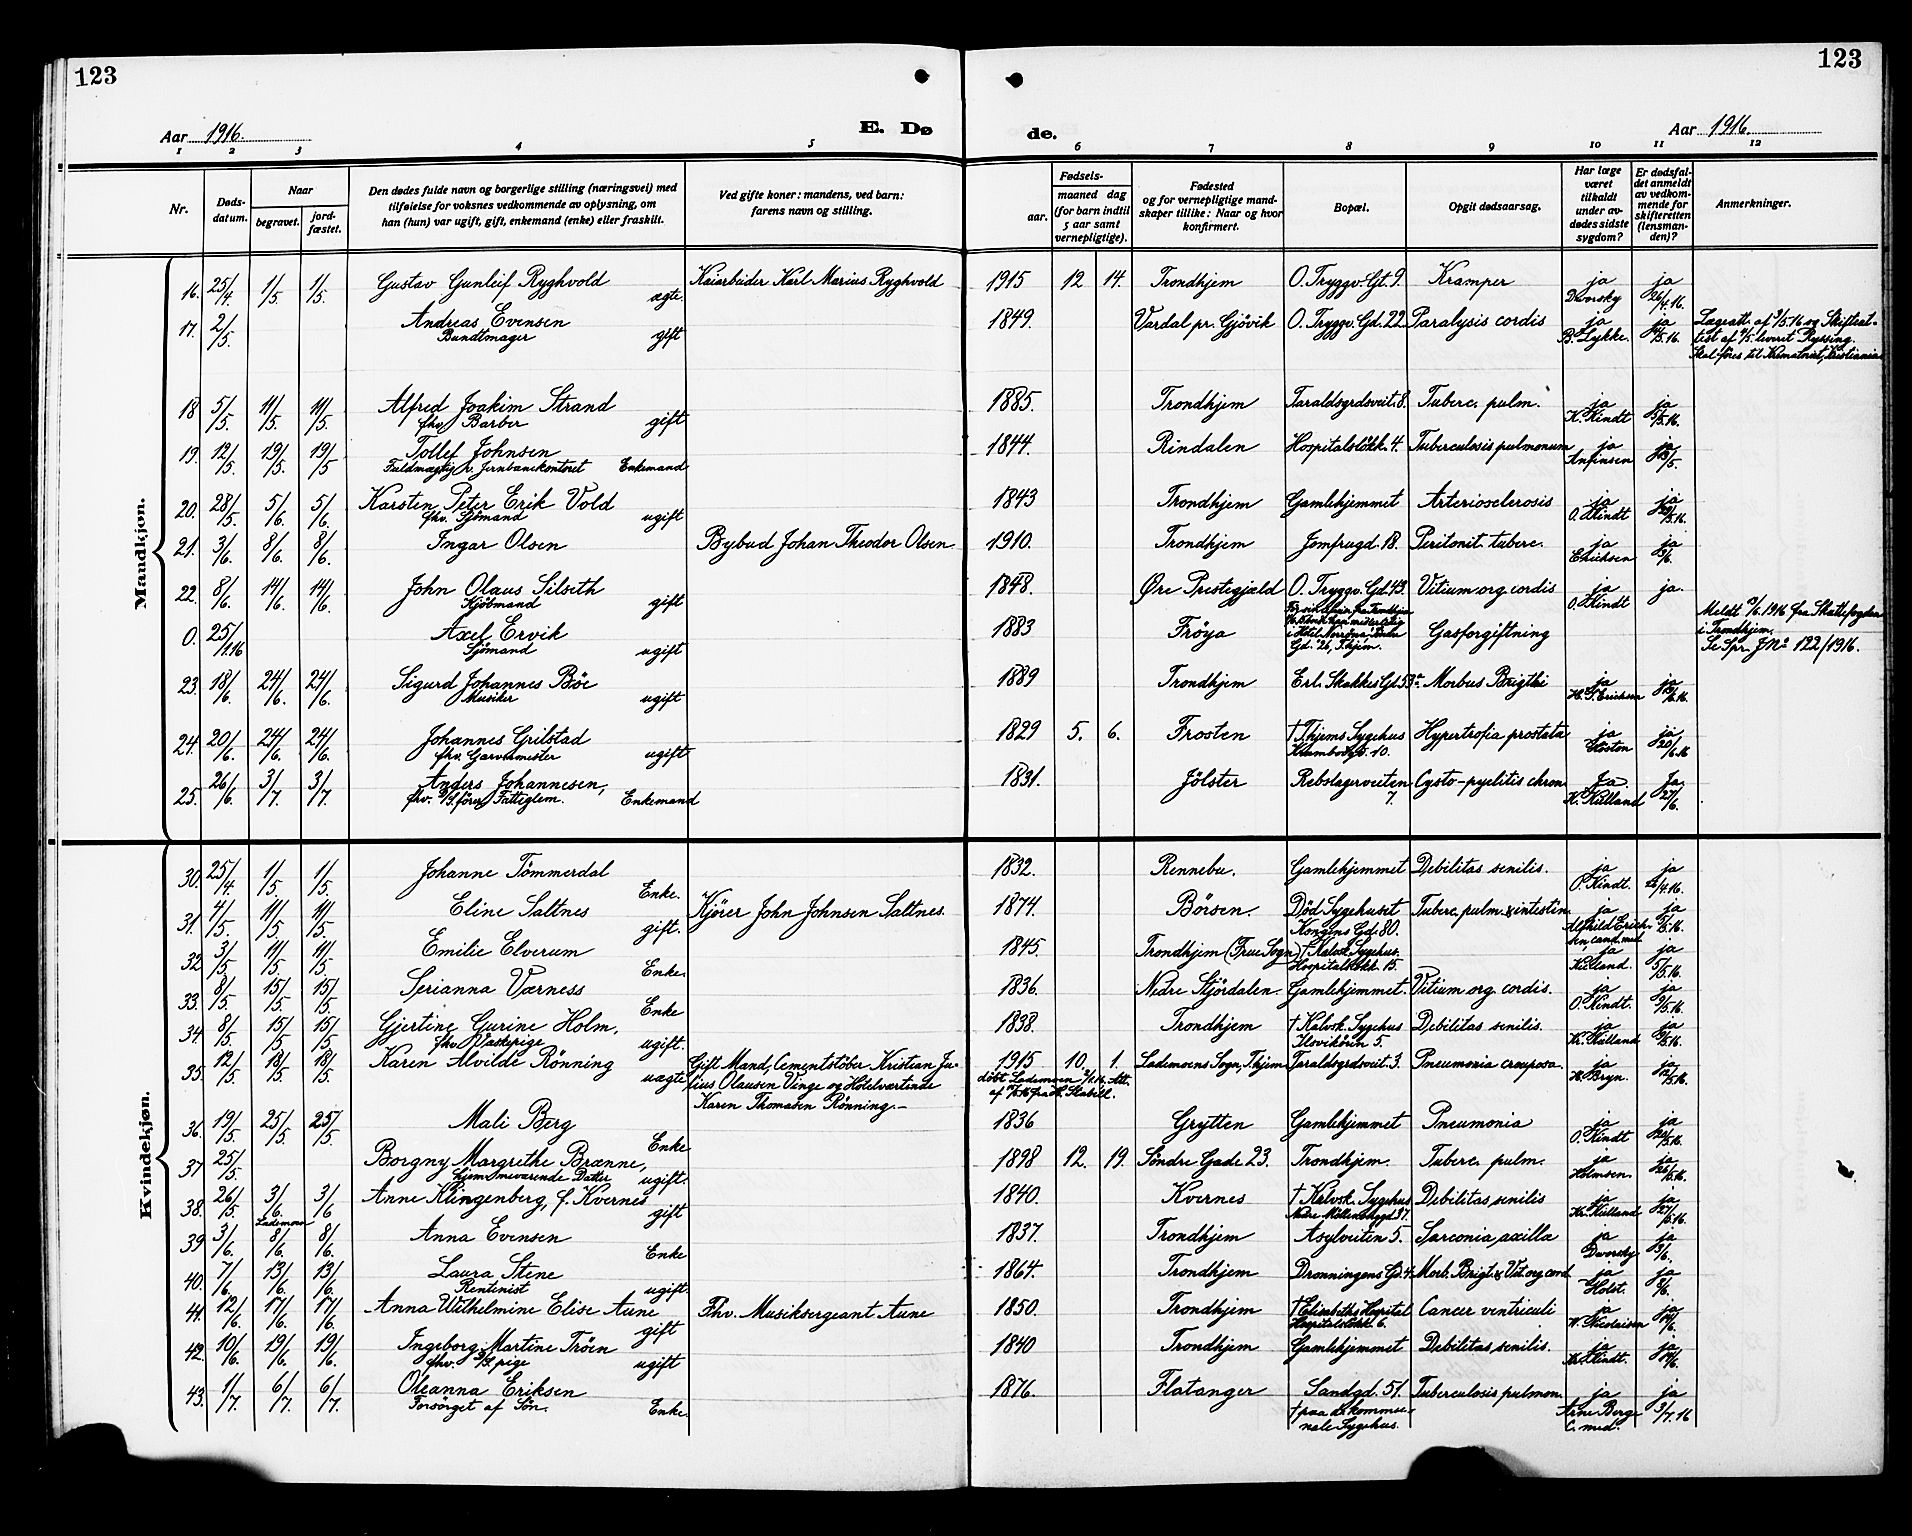 123
123
Aar 1916.
E. Dø
de.
Aar 1916.
1 2 3 4 5 6 7 8 9 10 11 12
Nr.
Døds-
datum.
Naar
begravet.
jord-
fæstet.
Den dødes fulde navn og borgerlige stilling (næringsvei) med
tilføielse for voksnes vedkommende av oplysning, om
han (hun) var ugift, gift, enkemand (enke) eller fraskilt.
Ved gifte koner: mandens, ved barn:
farens navn og stilling.
Fødsels-
aar.
maaned dag
(for barn indtil
5 aar samt
vernepligtige).
Fødested
og for vernepligtige mand-
skaper tillike: Naar og hvor
konfirmert.
Bopæl.
Opgit dødsaarsag.
Har læge
været
tilkaldt
under av-
dødes sidste
sygdom?
Er dødsfal-
det anmeldt
av vedkom-
mende for
skifteretten
(lensman-
den)?
Anmerkninger.
Mandkjøn.
16. 25/4. 1/5. 1/5. Gustav Gunleif Ryghvold ægte Kaiarbeider Karl Marius Ryghvold 1915 12 14. Trondhjem O. Tryggv. Gt. 9. Kramper ja ja
Dvorsky 26/4.16.
17. 2/5. Andreas Evensen 1849. Vardal pr. Gjövik O. Tryggv. Gd. 22. Paralysis cordis ja ja
Bundtmager gift B. Lykke. /5.16.
Lægeatt. af 3/5.16 og Skifteat-
test af /5. leveret Ryssing.
Skal føres til Krematoriet, Kristiania
18 5/5. 11/5. 11/5. Alfred Joakim Strand 1885. Trondhjem Taraldsgrdsveit. 8. Tuberc. pulm. ja ja
fhv. Barber gift K. Kindt 5/5.16.
19. 12/5. 19/5. 19/5 Tollef Johnsen 1844. Rindalen Hospitalsløkk. 4. Tuberculosis pulmonum ja ja
Fuldmægtig v. Jernbanekontoret Enkemand Anfinsen 13/5.
20. 28/5. 5/6. 5/6. Karsten Peter Erik Vold 1843 Trondhjem Gamlehjemmet Arteriosclerosis ja ja
fhv. Sjömand ugift O. Kindt /5.16.
21. 3/6. 8/6. 8/6. Ingar Olsen Bybud Johan Theodor Olsen 1910. Trondhjem Jomfrugd. 18. Peritonit. tuberc. ja ja
Erichsen 3/6.
22. 8/6. 14/6. 14/6. John Olaus Silseth 1848. Øre Prestegjæld O. Tryggv. Gd. 43. Vitium org. cordis ja ja.
Kjöbmand gift O. Kindt
0. 25/1.16 Axel Ervik 1883 Fröya Gasforgiftning
Sjömand ugift
Gd. 26, T.hjem.
Meldt /6. 1916 fra Skattefogden
i Trondhjem.
Se Spr. J No 122/1916.
23. 18/6. 24/6. 24/6. Sigurd Johannes Böe 1889 Trondhjem Erl. Skakkes Gd. 53a. Morbus Brigthi ja ja
Musiker ugift H. S. Erichsen 19/6.16.
24. 20/6. 24/6. 24/6. Johannes Grilstad 1829 5. 6. Frosten † T.hjems Sygehus Hypertrofia prostata ja ja
fhv. Garvermester ugift Krambodgd. 10. 20/6.16
25. 26/6. 3/7. 3/7. Anders Johannesen, 1831. Jölster Rebslagerveiten Cysto-pyelitis chron. Ja. Ja
fhv. D/S. förer, Fattiglem. Enkemand 7. K. Kulland 27/6.
Kvindekjøn.
30. 25/4. 1/5. 1/5. Johanne Tömmerdal 1832. Rennebu. Gamlehjemmet Debilitas senilis. ja ja
Enke. O. Kindt. 26/4.16.
31. 4/5. 11/5. 11/5. Eline Saltnes Kjörer John Johnsen Saltnes. 1874. Börsen. Död Sygehuset Tuberc. pulm. & intestin. ja ja
gift. Kongens Gd. 80. Alfhild Erich- /5.16.
sen cand. med
32 3/5 11/5. 11/5. Emilie Elverum 1845. Trondhjem (Frue Sogn) † Kalvsk. Sygehus. ja ja
Enke. Hospitalsløkk. 15. Kulland. 5/5.16.
33. 8/5 15/5. 15/5. Serianna Værness 1836. Nedre Stjördalen. Gamlehjemmet. Vitium org. cordis. ja ja
Enke O. Kindt. 9/5.16.
34 8/5. 15/5. 15/5. Gjertine Gurine Holm, 1838. Trondhjem † Kalvsk. Sygehus Debilitas senilis. ja ja
fhv. Vaskepige ugift. Ilsvikören 5. K. Kulland /5.16.
35. 12/5. 18/5. 18/5. Karen Alvilde Rönning uægte Gift Mand, Cementstöber Kristian Ju- 1915 10. 1. Lademoens Sogn, T.hjem Taraldsgrdsveit. 3. Pneumonia crouposa. ja ja
lius Olausen Vinge og Hotelvartinde döbt Lademoen 2/1.16. Att. H. Bryn. 12/5.16.
Karen Thomasen Rönning.—
36. 19/5. 25/5. 25/5. Mali Berg 1836 Grytten Gamlehjemmet Pneumonia ja ja
Enke O. Kindt 20/5.16.
37 25/5. Borgny Margrethe Brænne, 1898 12. 19. Söndre Gade 23. Trondhjem. Tuberc. pulm. ja ja
hjemmeværende Datter ugift. Holmsen. 26/5.16.
38. 26/5. 3/6. 3/6 Anne Klingenberg, f. Kvernes 1840. Kvernes † Kalvsk. Sygehus Debilitas senilis ja ja
Lademoen gift K. Kulland 27/5.16.
39 3/6. 8/6. 8/6. Anna Evensen 1837. Trondhjem Asylveiten 5. Sarconia axilla ja ja
Enke Dvorsky 3/6.
40. 7/6. 13/6. 13/6. Laura Stene 1864. Trondhjem Dronningens Gd. 4. Morb. Brigt. & Vit. org. cord. ja ja
Rentenist ugift. Holst. 8/6.
41. 12/6. 17/6. 17/6. Anna Wilhelmine Elise Aune Fhv. Musiksergeant Aune 1850. Trondhjem † Elisabeths Hospital Cancer ventriculi ja ja
gift Hospitalsløkk. 6. W. Nicolaisen 14/6.
42. 10/6. 19/6. 19/6. Ingeborg Martine Tröen 1840 Trondhjem Gamlehjemmet Debilitas senilis. ja ja
fhv. pige ugift Kindt. 14/6.
43. 1/7. 6/7. 6/7. Oleanna Eriksen 1876. Flatanger Sandgd. 51. Tuberculosis pulmon. ja ja
Forsörget af Sön. Enke. † paa d. kommu- Arne Berge 3/7.16
nale Sygehus. C. med.